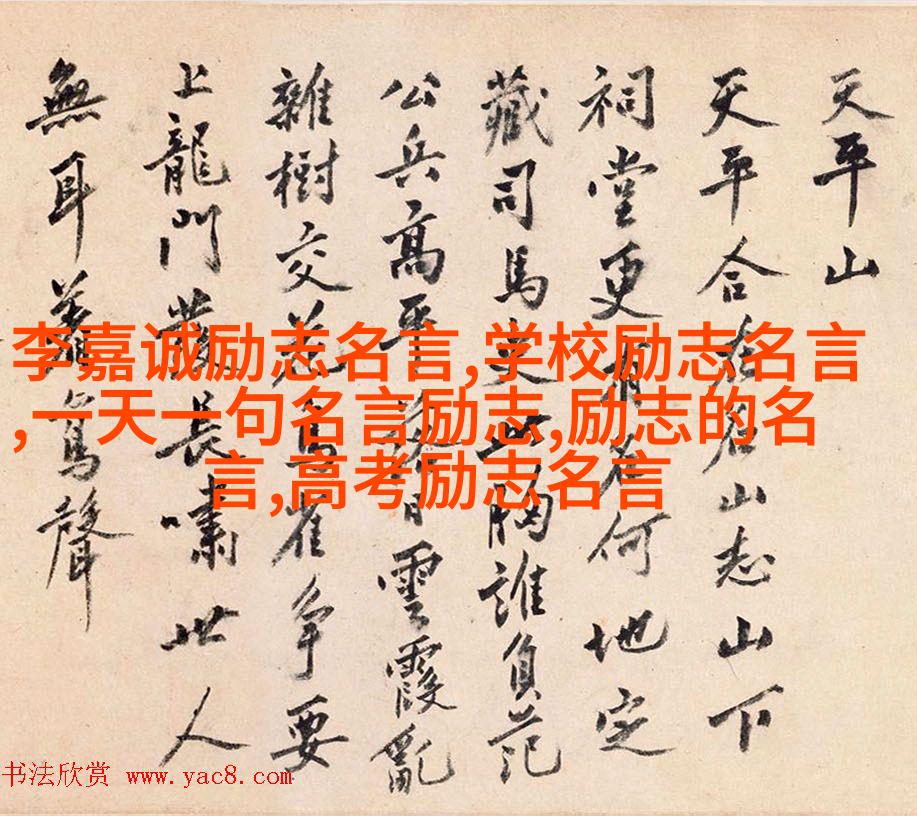 天平山
天平合在名山志山下
祠堂更有名何地定
藏司馬史此胸誰負范
公兵高平落日雲霞亂
雜樹交花鳥雀争要
上龍門發長嘯世人
無耳聲
李嘉诚励志名言,学校励志名言
,一天一句名言励志,励志的名
言,高考励志名言
书法欣赏 www.yac8.com